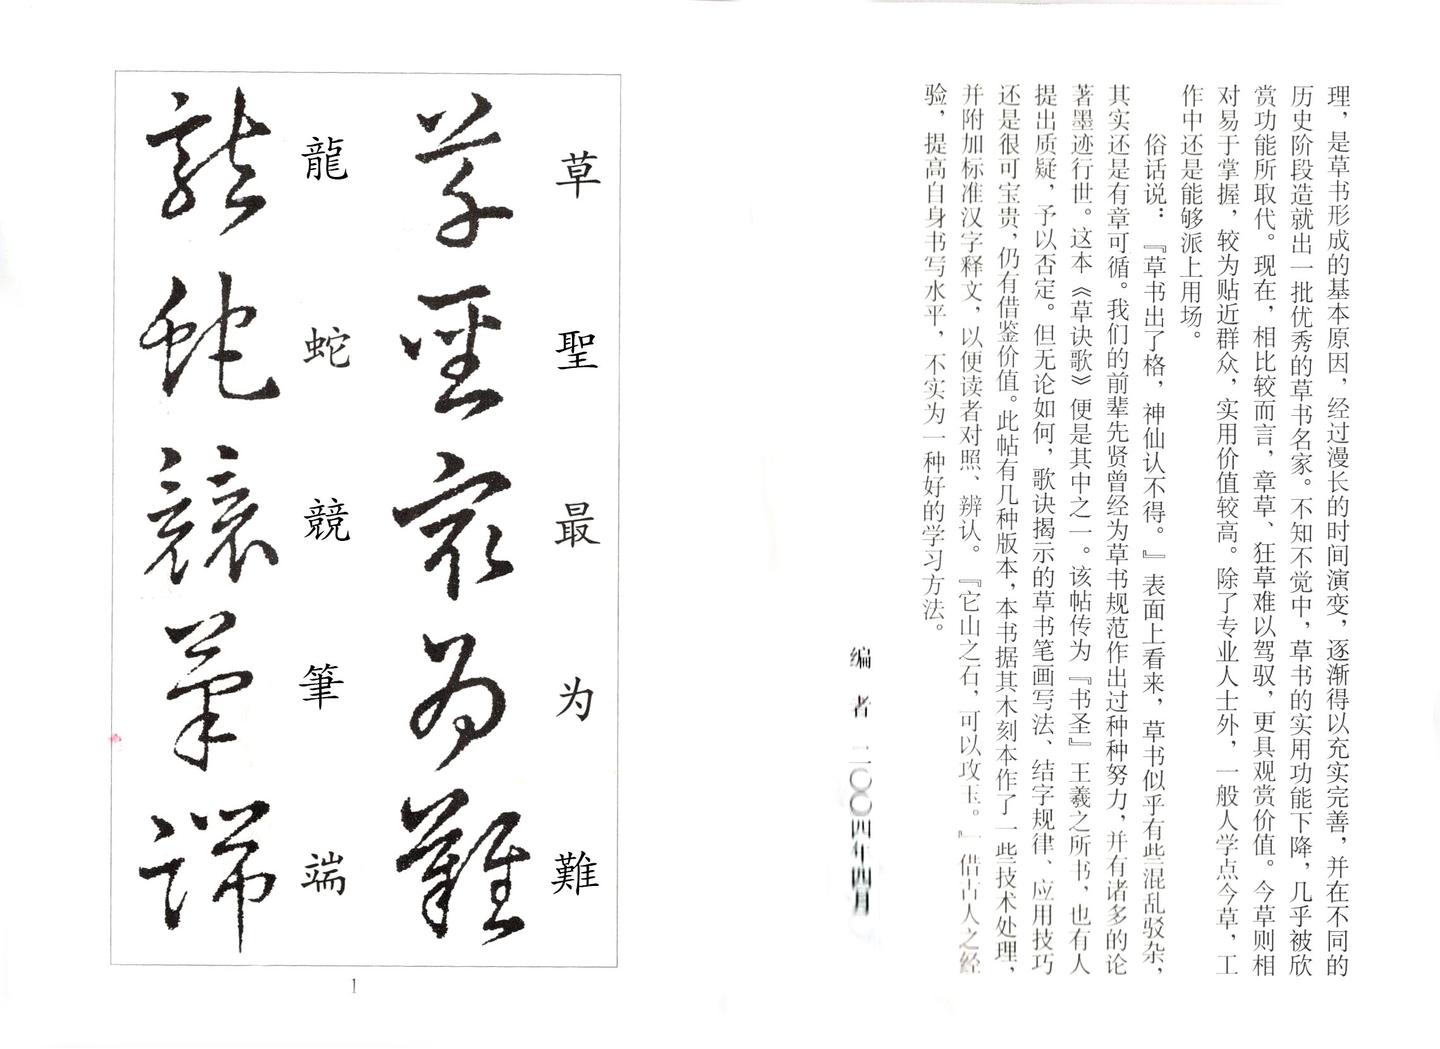 理，是草书形成的基本原因，经过漫长的时间演变，逐渐得以充实完善，并在不同的
历史阶段造就出一批优秀的草书名家。不知不觉中，草书的实用功能下降，几乎被欣
赏功能所取代。现在，相比较而言，章草、狂草难以驾驭，更具观赏价值。今草则相
对易于掌握，较为贴近群众，实用价值较高。除了专业人士外，一般人学点今草，工
作中还是能够派上用场。
俗话说：『草书出了格，神仙认不得。』表面上看来，草书似乎有些混乱驳杂，
其实还是有章可循。我们的前辈先贤曾经为草书规范作出过种种努力，并有诸多的论
著墨迹行世。这本《草诀歌》便是其中之一。该帖传为『书圣』王羲之所书，也有人
提出质疑，予以否定。但无论如何，歌诀揭示的草书笔画写法、结字规律、应用技巧
还是很可宝贵，仍有借鉴价值。此帖有几种版本，本书据其木刻本作了一些技术处理，
并附加标准汉字释文，以便读者对照、辨认。『它山之石，可以攻玉。』借古人之经
验，提高自身书写水平，不实为一种好的学习方法。
编 者 二〇〇四年四月
草聖最为難
草聖最为難
龍蛇競筆端
龍蛇競筆端
1